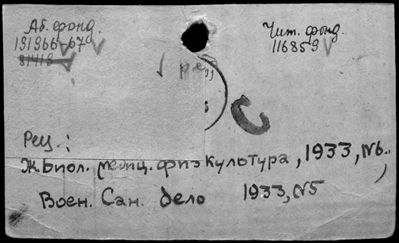 Аб. фонд.
Чит. фонд.
191966-67
116859
81418
рец
С
Рец.:
Ж. Биол. медиц. физкультура, 1933, №6.,
Воен. Сан. дело 1933, №5